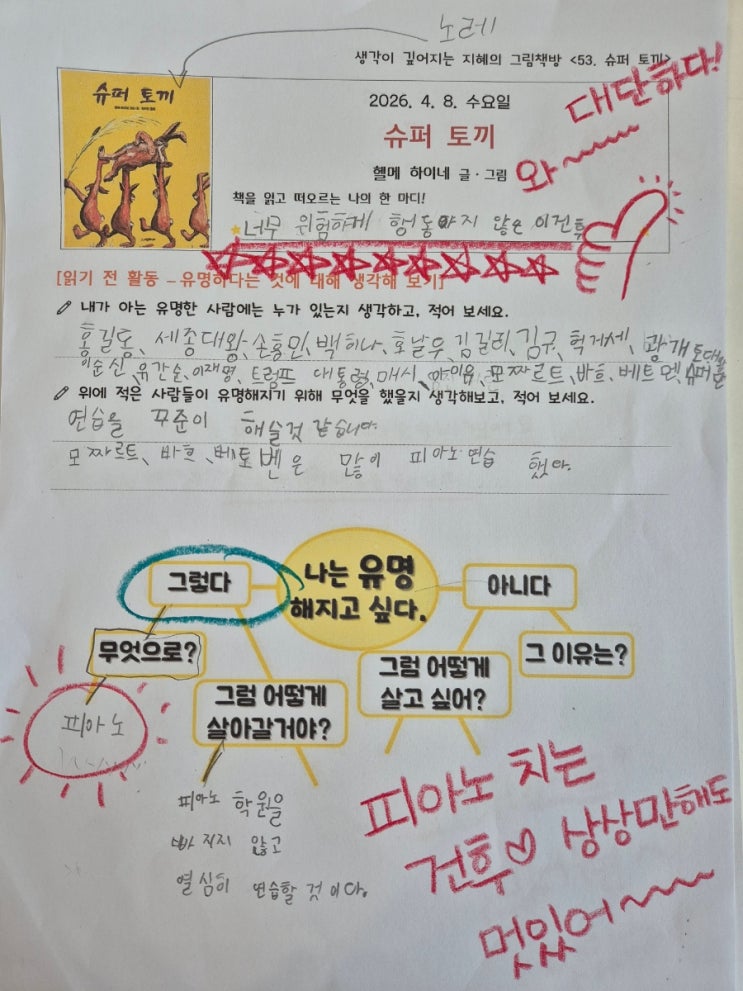 노레
생각이 깊어지는 지혜의 그림책방 <53. 슈퍼 토끼>
슈퍼 토끼
2026. 4. 8. 수요일
대단하다!
슈퍼 토끼
와~
헬메 하이네 글·그림
책을 읽고 떠오르는 나의 한 마디!
너무 위험하게 행동하지 않은 이건후
[읽기 전 활동 – 유명하다는 것에 대해 생각해 보기]
내가 아는 유명한 사람에는 누가 있는지 생각하고, 적어 보세요.
홍길동, 세종대왕, 손흥민, 백하나, 호날두, 김길리, 김구, 혁거세, 광개토대왕
이순신, 유간순, 이재명, 트럼프 대통령, 매시, 모짜르트, 바흐, 베트벤, 슈퍼
위에 적은 사람들이 유명해지기 위해 무엇을 했을지 생각해보고, 적어 보세요.
연습을 꾸준이 해슬것 같습니다.
모짜르트, 바흐, 베토벤은 많이 피아노 연습 했다.
나는 유명
해지고 싶다.
그렇다
아니다
무엇으로?
그럼 어떻게
살아갈거야?
그럼 어떻게
살고 싶어?
그 이유는?
피아노
피아노 학원을
빠지지 않고
열심히 연습할 것이다.
피아노 치는
건후♡ 상상만해도
멋있어~